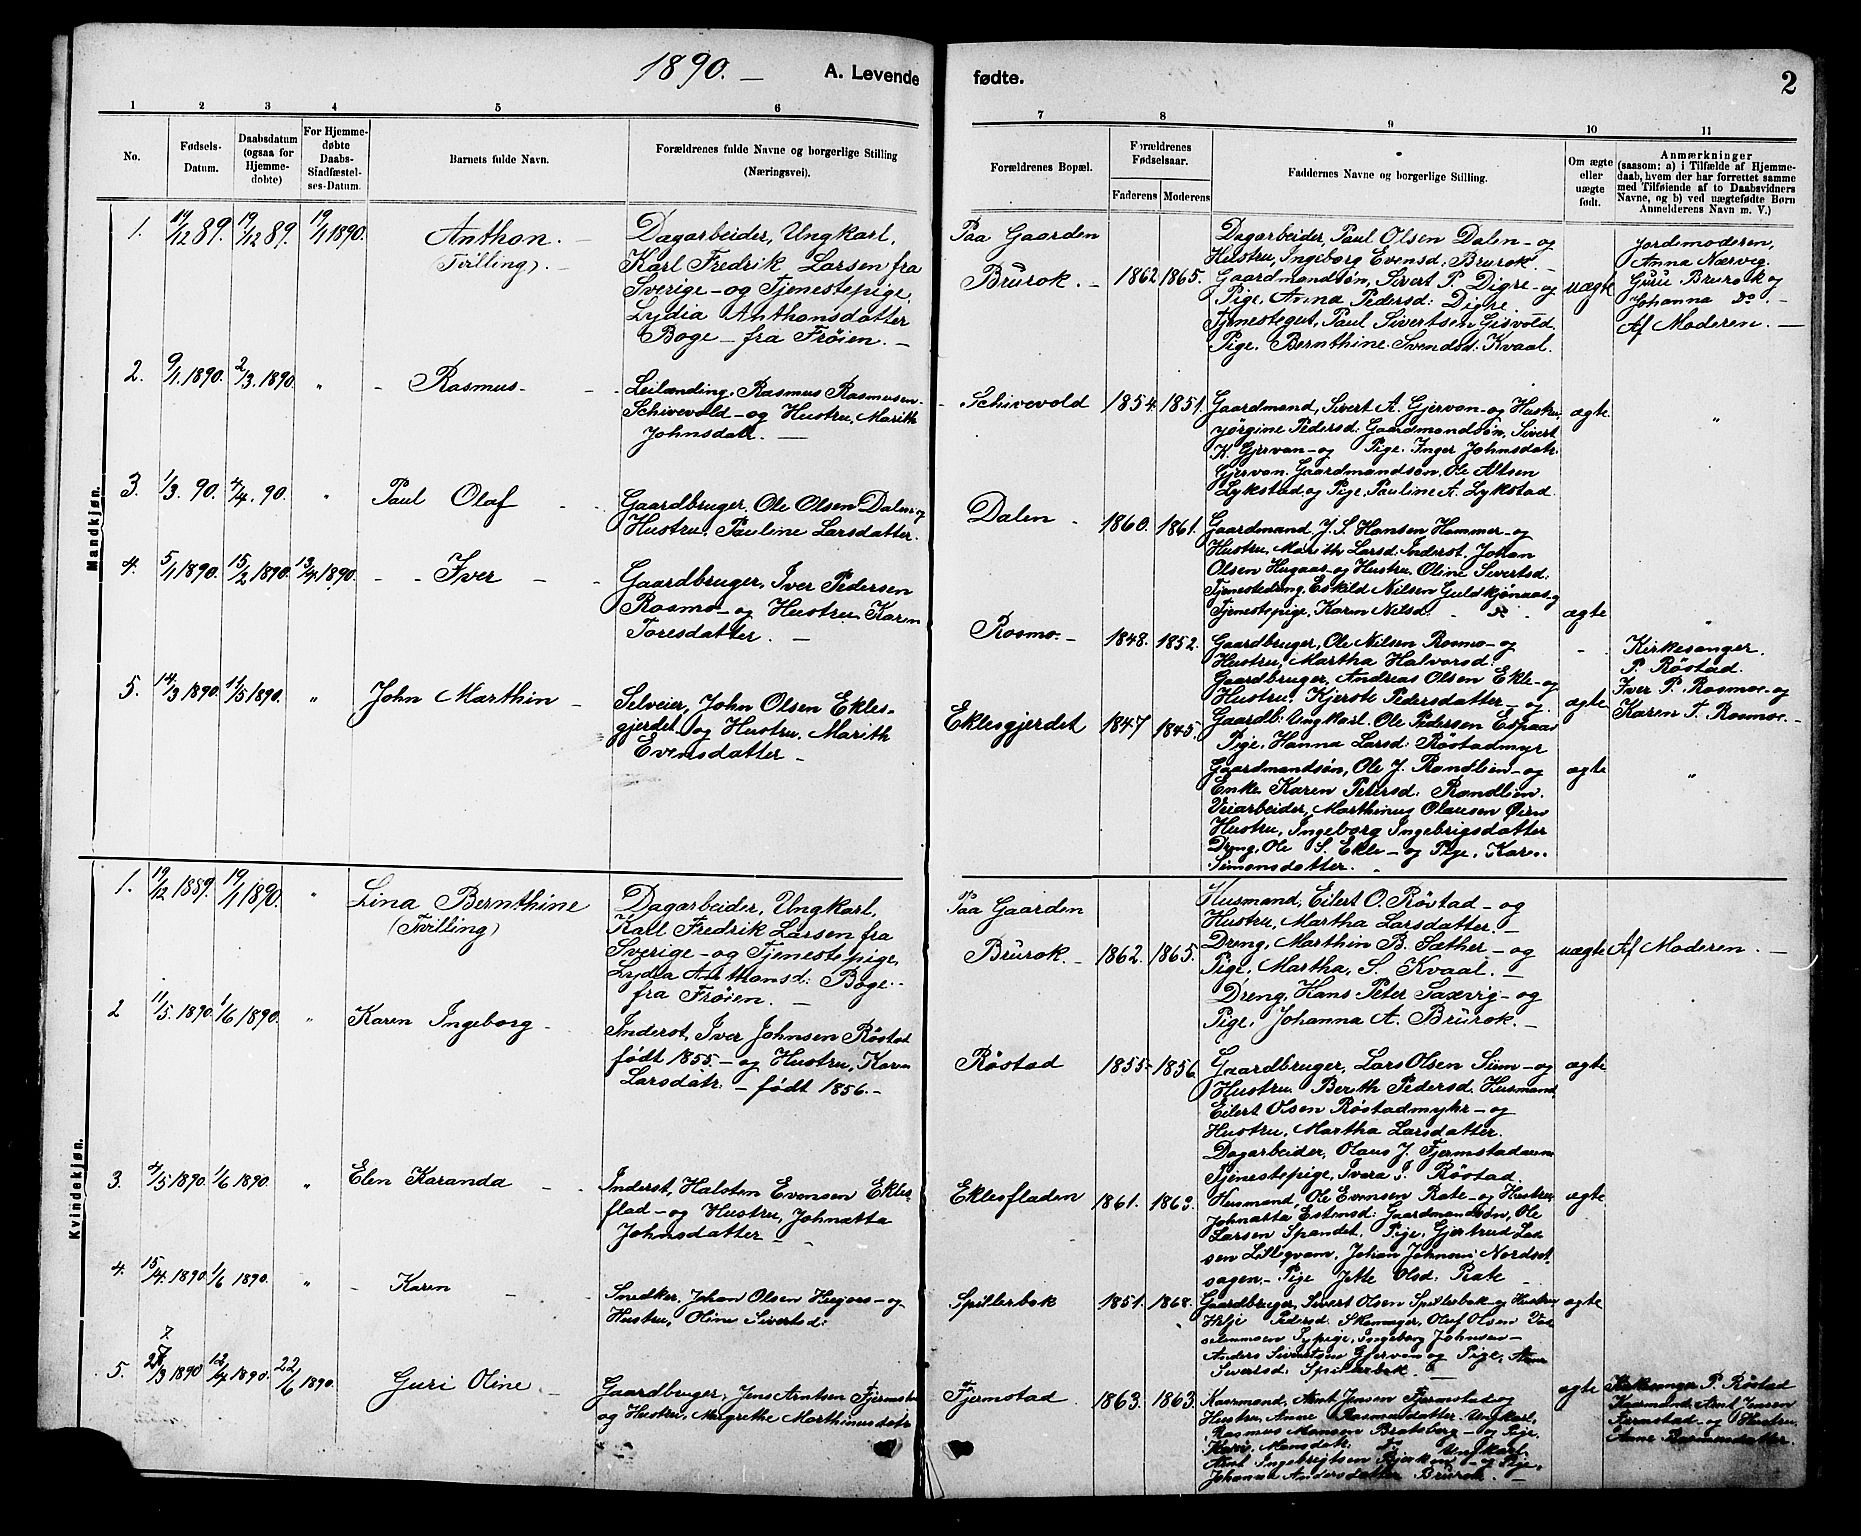 1890. –
A. Levende
fødte.
2
1 2 3 4 5 6 7 8 9 10 11
No.
Fødsels-
Datum.
Daabsdatum
(ogsaa for
Hjemme-
døbte)
For Hjemme-
døbte
Daabs-
Stadfæstel-
ses-Datum.
Barnets fulde Navn.
Forældrenes fulde Navne og borgerlige Stilling
(Næringsvei).
Forældrenes Bopæl.
Forældrenes
Fødselsaar.
Faderens Moderens
Faddernes Navne og borgerlige Stilling.
Om ægte
eller
uægte
født.
Anmærkninger
(saasom: a) i Tilfælde af Hjemme-
daab, hvem der har forrettet samme
med Tilføiende af to Daabsvidners
Navne, og b) ved uægtefødte Børn
Anmelderens Navn m. V.)
Mandkjøn.
1. 19/12 89. 19/12 89. 19/1 1890.
Anthon. –
(Tvilling). –
Dagarbeider, Ungkarl,
Karl Fredrik Larsen fra
Sverige – og Tjenestepige,
Lydia Anthonsdatter
Boge – fra Frøien. –
Paa Gaarden
Brurok. – 1862 1865.
Dagarbeider, Paul Olsen Dalen – og
Hustru, Ingeborg Evensd. Brurok. –
Gaardmandsøn, Sivert P. Digre – og
Pige, Anna Pedersd: Digre
Tjenestegut, Paul Sivertsen Gisvold.
Pige. Bernthine Svendsd: Kvaal.
uægte
Jordemoderen,
Anna Nærvig.
Guru Brurok og
Johanna do. –
Af Moderen. –
2. 9/1 1890. 2/3 1890. "
Rasmus –
Leilænding, Rasmus Rasmussen
Schivevold – og Hustru, Marith
Johnsdatr. –
Schivevold 1854 1851.
Gaardmand, Sivert A. Gjervan – og Hustru,
Jørgine Pedersd: Gaardmandsøn, Sivert
K. Gjervan – og Pige. Inger Johnsdatr.
Gjervan. Gaardmandsøn, Ole Altsen
Lykstad og Pige, Pauline A. Lykstad.
ægte
"
3. 1/3. 90. 4/4. 90. "
Paul Olaf
Gaardbruger, Ole Olsen Dalen og
Hustru. Pauline Larsdatter.
Dalen – 1860. 1861.
Gaardmand, J. S. Hansen Hammer – og
Hustru, Marith Larsd. Inderst, Johan
Olsen Hugaas – og Hustru, Oline Sivertsd:
Tjenestedreng, Eskild Nilsen Guldkjønaas – og
Tjenestepige, Karen Nilsd: do.
ægte
"
4. 5/1 1890. 15/2 1890. 13/4 1890.
Iver –
Gaardbruger, Iver Pedersen
Rosmo – og Hustru, Karen
Toresdatter. –
Rosmo – 1848. 1852.
Gaardbruger, Ole Nilsen Rosmo – og
Hustru, Martha Halvorsd:
Gaardbruger, Andreas Olsen Ekle – og
Hustru, Kjerste Pedersdatter – og
Gaardb: Ungkarl. Ole Pedersen Espaas
Pige, Hanna Larsd: Røstadmyr
ægte
Kirkesanger
P. Røstad.
Iver P. Rosmo – og
Karen T. Rosmo. –
5. 14/3 1890. 11/5 1890. "
John Marthin –
Selveier, John Olsen Ekles-
gjerdet og Hustru, Marith
Evensdatter –
Eklesgjerdet 1847 1845.
Gaardmandsøn, Ole J. Randlien – og
Enke Karen Petersd: Randlien.
Veiarbeider, Marthinus Olausen Øien
Hustru, Ingeborg Ingebrigsdatter
Dreng, Ole S. Ekle – og Pige, Kar..
Simonsdatter. –
ægte
"
Kvindekjøn.
1. 19/12 1889. 19/1 1890. "
Lina Bernthine
(Tvilling)
Dagarbeider, Ungkarl,
Karl Fredrik Larsen fra
Sverige – og Tjenestepige,
Lydia Anthonsd: Boge –
fra Frøien. –
Paa Gaarden
Brurok. – 1862. 1865.
Husmand, Eilert O. Røstad – og
Hustru, Martha Larsdatter. –
Dreng, Marthin B. Sæther – og
Pige, Martha, S. Kvaal. –
Dreng, Hans Peter Saxvig – og
Pige, Johanna A. Brurok. –
uægte
Af Moderen. –
2 11/5. 1890. 1/6 1890. "
Karen Ingeborg –
Inderst, Iver Johnsen Røstad
født 1855 – og Hustru, Karen
Larsdatr. – født 1856. –
Røstad 1855 – 1856
Gaardbruger, Lars Olsen Siim – og
Hustru Bereth Pedersd. Husmand
Eilert Olsen Røstadmyhr – og
Hustru, Martha Larsdatter.
Dagarbeider, Olaus J. Fjermstadaune
Tjenestepige, Ivera J. Røstad.
ægte
3. 4/5 1890 1/6 1890. "
Elen Karanda –
Inderst, Halsten Evensen Ekles-
flad – og Hustru, Johnetta
Johnsdatter –
Eklesfladen 1861. 1863.
Husmand, Ole Evensen Rate – og Hustru
Johnetta Estensd: Gaardmandsøn, Ole
Larsen Spandet, Pige, Gjertrud Lar-
sen Lillegvam, Johan Johnsen Nordset-
sagen – Pige Jette Olsd: Rate –
ægte
4. 15/4. 1890. 1/6 1890. "
– Karen
Snedker, Johan Olsen Hugaas – og
Hustru, Oline Sivertsd:
Spillerbok 1851. 1868.
Gaardbruger, Sivert Olsen Spillerbok – og Hustru
Pedersd: Oluf Olsen
Sypige, Ingeborg Johnsen –
Anders Sivertsen Gjervan og Pige,
Sivertsd: Spillerbok –
ægte
5. 27/3 1890 12/4 1890. 22/6 1890.
Guri Oline –
Gaardbruger, Jens Arntsen Fjermstad
og Hustru, Margrethe Marthinusdatr
Fjermstad 1863. 1863.
Kaarmand, Arnt Jensen Fjermstad og
Hustru, Anne Rasmusdatter. Ungkarl,
Rasmus Hansen Bratsberg – og Pige,
Kari Monsdatr: do Ungkarl
Arnt Ingebrigtsen – og Pige,
Johanna Andersdatter Brurok. –
ægte
Kirkesanger P. Røstad
Kaarmand, Arnt Jensen
Fjermstad – og Hustru,
Anne Rasmusdatter.